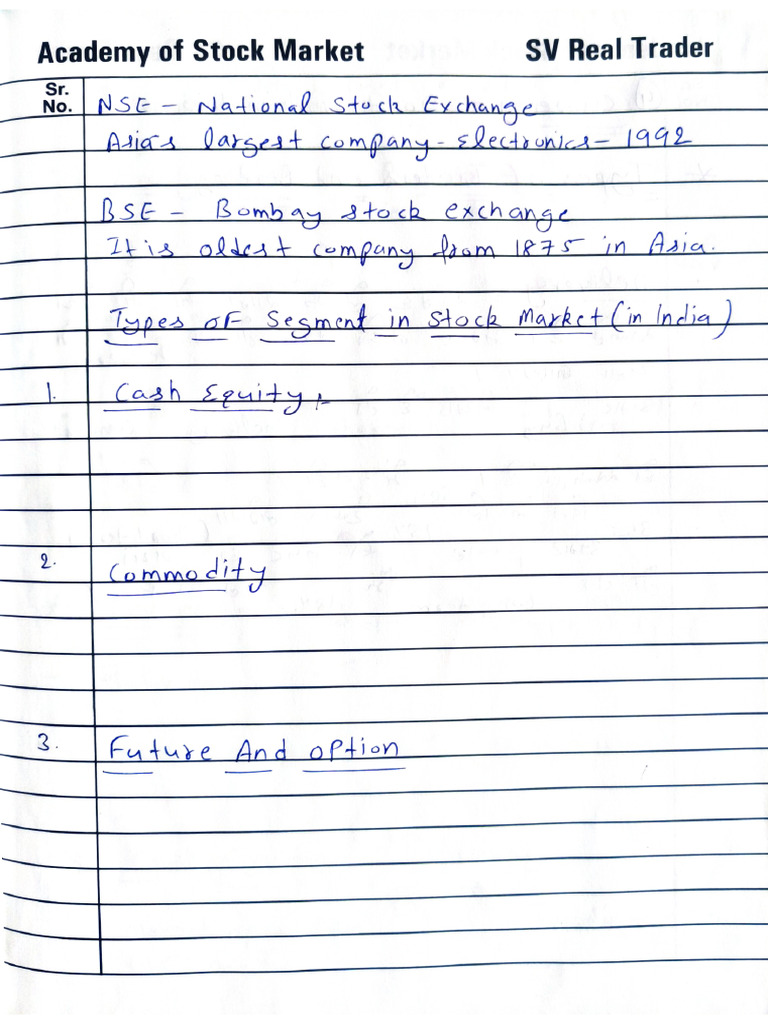 Academy of Stock Market SV Real Trader
Sr.
No.
NSE - National Stock Exchange
Asia's largest company - Electronics - 1992
BSE - Bombay stock exchange
It is oldest company from 1875 in Asia.
Types of Segment in Stock Market (in India)
1. Cash Equity :-
2. Commodity
3. Future And option